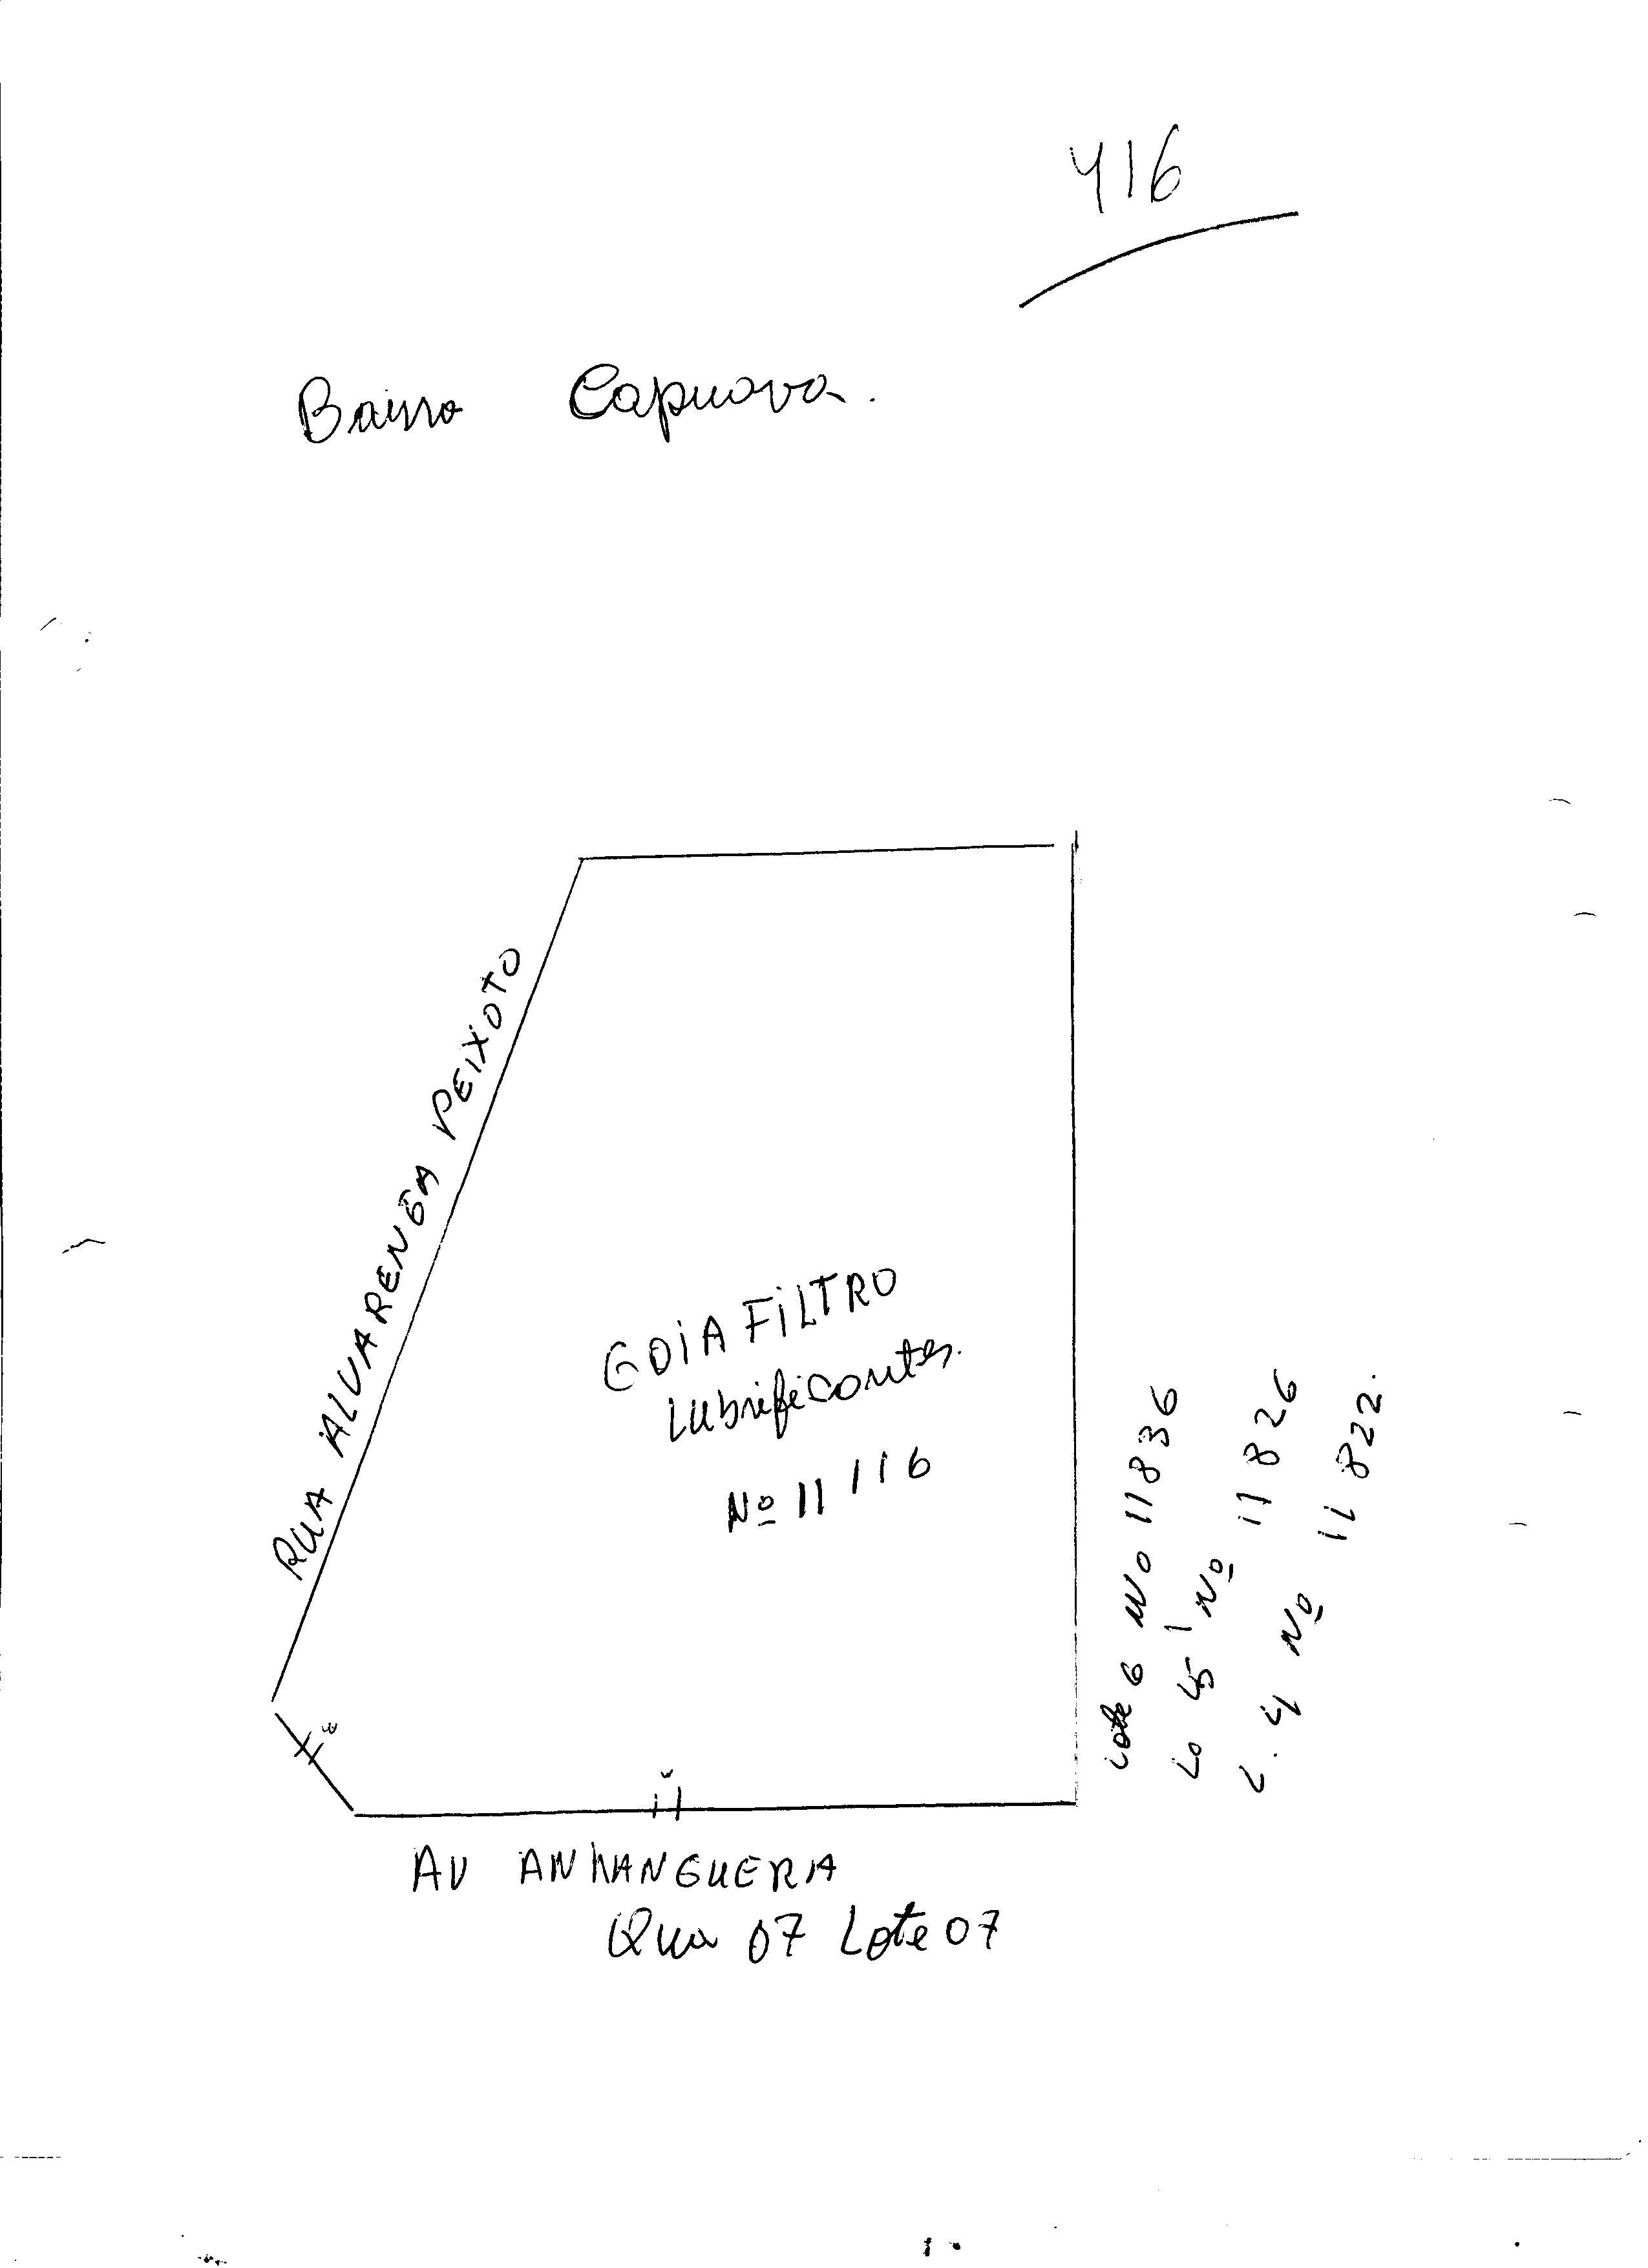 416
Bairro Capuava.
RUA ALVARENGA PEIXOTO
GOIA FILTRO
Lubrificantes.
Nº 11116
Lote 6 No 11836
Lo 5 Nº 11826
L. 4 Nº 11822.
AV ANHANGUERA
Qua 07 Lote 07